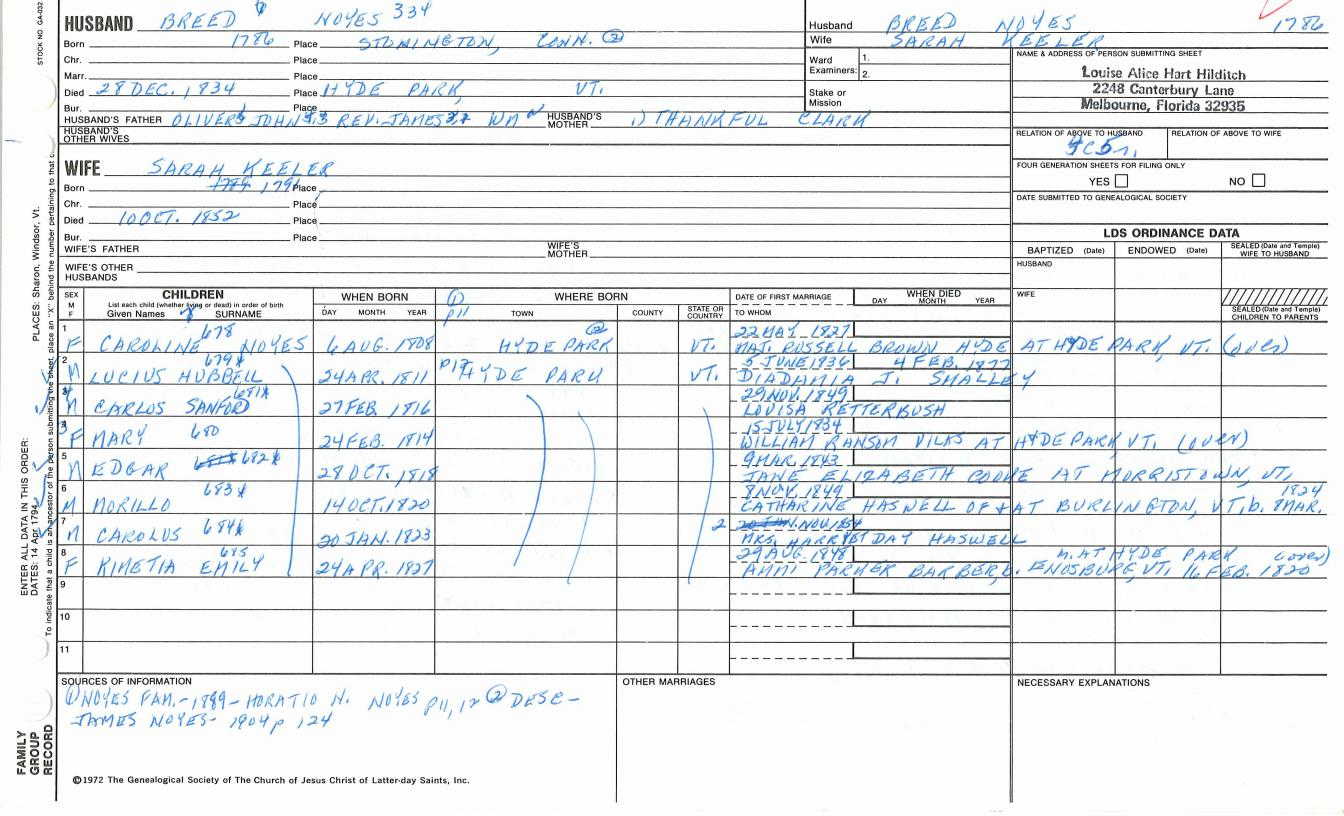 STOCK NO. GA-032
HUSBAND BREED NOYES 334
Born 1786 Place STONINGTON, CONN. ②
Chr. Place
Marr. Place
Died 28 DEC. 1834 Place HYDE PARK, VT.
Bur. Place
HUSBAND'S FATHER OLIVER JOHN REV. JAMES WM HUSBAND'S MOTHER 1) THANKFUL CLARK
HUSBAND'S OTHER WIVES
Husband BREED NOYES 1786
Wife SARAH KEELER
Ward Examiners: 1.
2.
Stake or Mission
NAME & ADDRESS OF PERSON SUBMITTING SHEET
Louise Alice Hart Hilditch
2248 Canterbury Lane
Melbourne, Florida 32935
RELATION OF ABOVE TO HUSBAND RELATION OF ABOVE TO WIFE
FOUR GENERATION SHEETS FOR FILING ONLY
YES NO
DATE SUBMITTED TO GENEALOGICAL SOCIETY
WIFE SARAH KEELER
Born 1789 1791 Place
Chr. Place
Died 10 OCT. 1852 Place
Bur. Place
WIFE'S FATHER WIFE'S MOTHER
WIFE'S OTHER HUSBANDS
LDS ORDINANCE DATA
BAPTIZED (Date) ENDOWED (Date) SEALED (Date and Temple) WIFE TO HUSBAND
HUSBAND
WIFE
SEALED (Date and Temple) CHILDREN TO PARENTS
SEX M F
CHILDREN
List each child (whether living or dead) in order of birth
Given Names SURNAME
WHEN BORN
DAY MONTH YEAR
① P11
WHERE BORN
TOWN COUNTY STATE OR COUNTRY
DATE OF FIRST MARRIAGE
TO WHOM
WHEN DIED
DAY MONTH YEAR
678 ② 22 MAY. 1827
1 F CAROLINE NOYES 6 AUG. 1808 HYDE PARK VT. MAJ. RUSSELL BROWN HYDE AT HYDE PARK, VT. (over)
679 5 JUNE 1836 4 FEB. 1877
2 M LUCIUS HUBBELL 24 APR. 1811 P12 HYDE PARK VT. DIADAMIA J. SMALLEY
681 29 NOV. 1849
M CARLOS SANFORD 27 FEB. 1816 LOUISA RETTERBUSH
680 15 JULY 1834
3 F MARY 24 FEB. 1814 WILLIAM RANSOM VILAS AT HYDE PARK VT. (over)
9 MAR. 1843
5 M EDGAR 682 28 OCT. 1818 JANE ELIZABETH COOKE AT MORRISTOWN, VT.
683 8 NOV. 1849 1824
6 M MORILLO 14 OCT. 1820 CATHARINE HASWELL OF & AT BURLINGTON, VT. b. 8 MAR.
684 2 NOV. 1854
7 M CAROLUS 20 JAN. 1823 MRS. HARRIET DAY HASWELL
685 29 AUG. 1848 m. AT HYDE PARK (over)
8 F KINETIA EMILY 24 APR. 1827 AMMI PARKER BARBER, b. ENOSBURG, VT. 16 FEB. 1820
9
10
11
SOURCES OF INFORMATION
① NOYES FAM.- 1889 - HORATIO N. NOYES P11, 12 ② DESC-
JAMES NOYES- 1904 p 124
OTHER MARRIAGES
NECESSARY EXPLANATIONS
©1972 The Genealogical Society of The Church of Jesus Christ of Latter-day Saints, Inc.
FAMILY GROUP RECORD
ENTER ALL DATA IN THIS ORDER:
DATES: 14 Apr 1794 PLACES: Sharon, Windsor, Vt.
To indicate that a child is an ancestor of the person submitting the sheet, place an "X" behind the number pertaining to that c